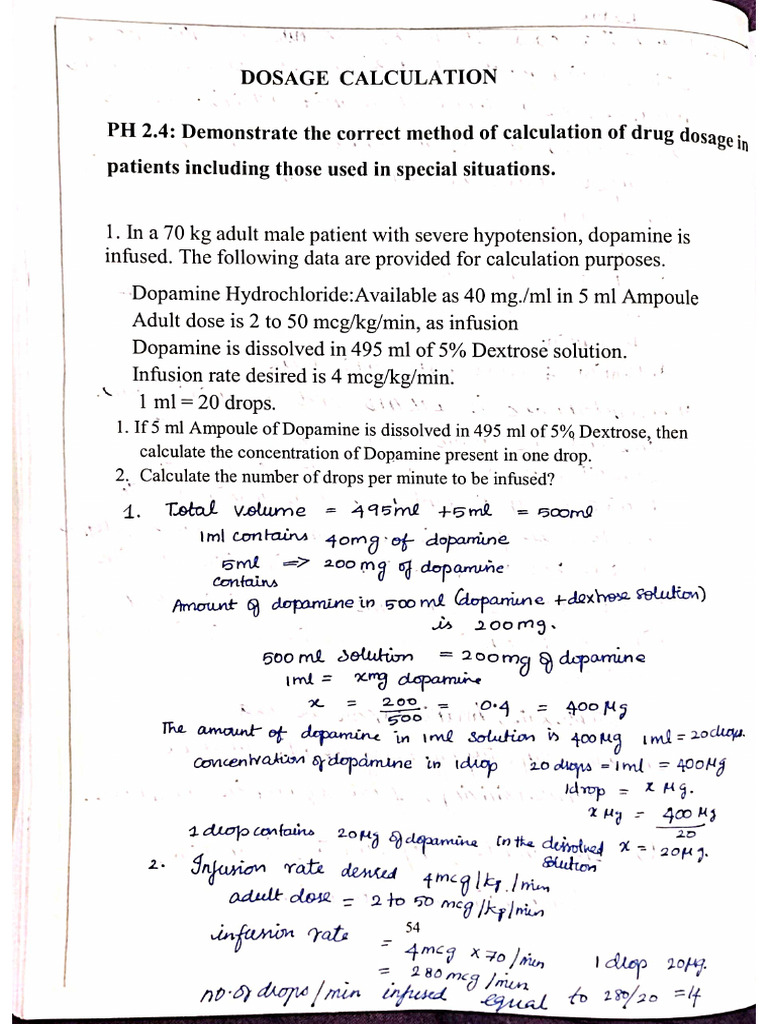 DOSAGE CALCULATION
PH 2.4: Demonstrate the correct method of calculation of drug dosage in
patients including those used in special situations.
1. In a 70 kg adult male patient with severe hypotension, dopamine is
infused. The following data are provided for calculation purposes.
Dopamine Hydrochloride:Available as 40 mg./ml in 5 ml Ampoule
Adult dose is 2 to 50 mcg/kg/min, as infusion
Dopamine is dissolved in 495 ml of 5% Dextrose solution.
Infusion rate desired is 4 mcg/kg/min.
1 ml = 20 drops.
1. If 5 ml Ampoule of Dopamine is dissolved in 495 ml of 5% Dextrose, then
calculate the concentration of Dopamine present in one drop.
2. Calculate the number of drops per minute to be infused?
1. Total volume = 495ml + 5ml = 500ml
1ml contains 40mg of dopamine
5ml => 200 mg of dopamine
contains
Amount of dopamine in 500 ml (dopamine + dextrose solution)
is 200mg.
500 ml solution = 200mg of dopamine
1ml = xmg dopamine
x = 200/500 = 0.4 = 400 Mg
The amount of dopamine in 1ml solution is 400 Mg 1ml = 20drops.
concentration of dopamine in 1drop 20 drops = 1ml = 400Mg
1drop = x Mg.
x Mg = 400 Mg/20
1 drop contains 20Mg of dopamine in the dissolved x = 20Mg.
solution
2. Infusion rate desired 4mcg/kg./min
adult dose = 2 to 50 mcg/kg/min
54
infusion rate = 4mcg x 70/min 1 drop 20Mg.
= 280mcg/min
no.of drops/min infused equal to 280/20 = 14